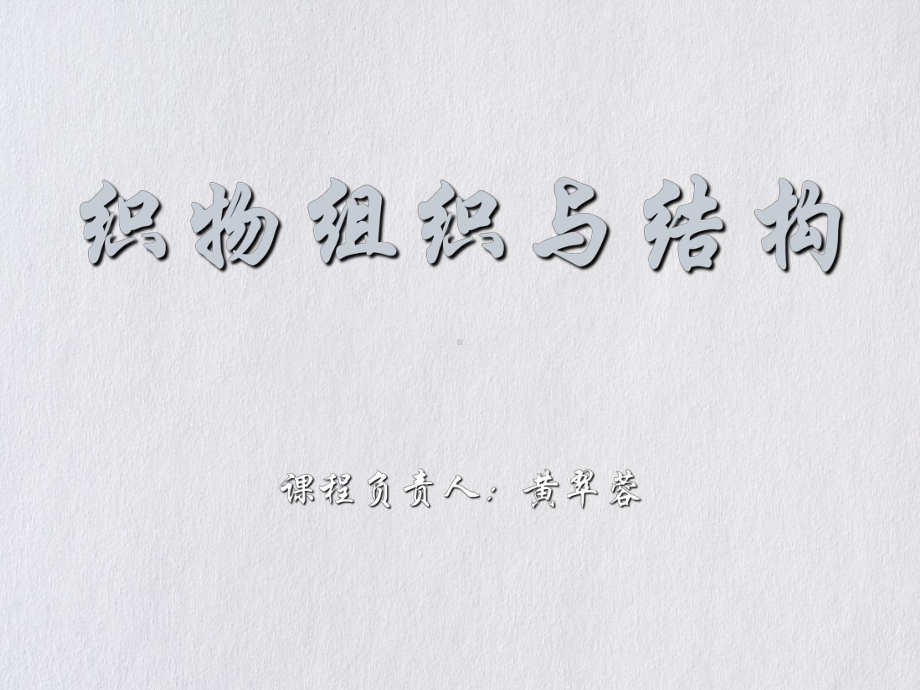 织物组织与结构
课程负责人：黄翠蓉